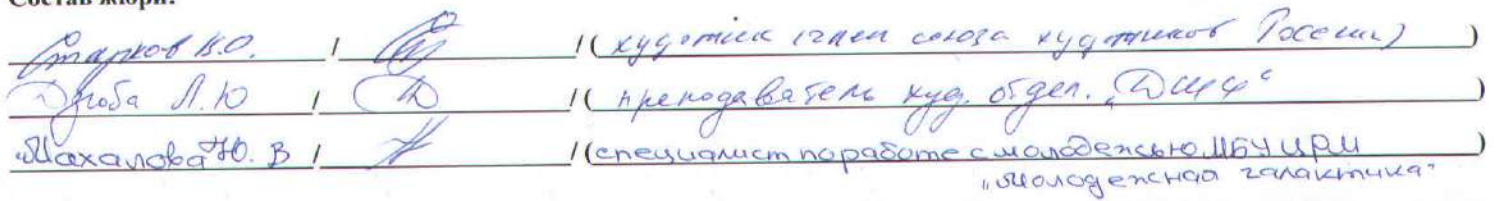 Состав жюри:
Старков В.О. / / ( художник (член союза художников России) )
Дроба Л.Ю / / ( преподаватель худ. отдел. „ДШИ“ )
Махалова Ю. В / / (специалист по работе с молодежью МБУ ЦРМ )
„Молодежная галактика“